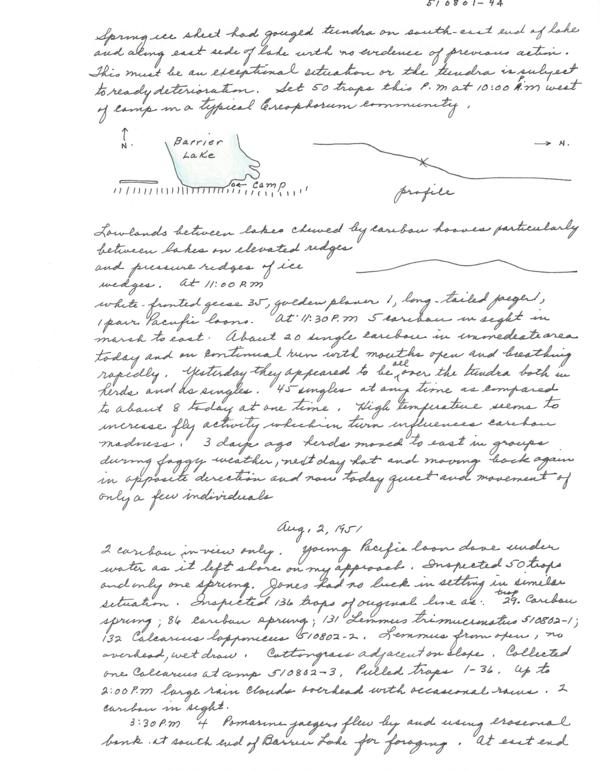 510801-44
Spring ice sheet had gouged tundra on south-east end of lake
and along east side of lake with no evidence of previous action.
This must be an exceptional situation or the tundra is subject
to ready deterioration. Set 50 traps this P.M at 10:00 P.M west
of camp in a typical Ereophorum community.
N.
Barrier
Lake
camp
N.
profile
Lowlands between lakes chewed by caribou hooves particularly
between lakes on elevated ridges
and pressure ridges of ice
wedges. At 11:00 P.M
white-fronted geese 35, golden plover 1, long-tailed jaeger 1,
1 pair Pacific loons. At 11:30 P.M 5 caribou in sight in
marsh to east. About 20 single caribou in immediate area
today and on continual run with mouths open and breathing
rapidly. Yesterday they appeared to be all over the tundra both in
herds and as singles. 45 singles at any time as compared
to about 8 today at one time. High temperature seems to
increase fly activity which in turn influences caribou
madness. 3 days ago herds moved to east in groups
during foggy weather, next day hot and moving back again
in opposite direction and now today quiet and movement of
only a few individuals
Aug. 2, 1951
2 caribou in view only. Young Pacific loon dove under
water as it left shore on my approach. Inspected 50 traps
and only one sprung. Jones had no luck in setting in similar
situation. Inspected 136 traps of original line as: trap 29. Caribou
sprung; 86 caribou sprung; 131 Lemmus trimucronatus 510802-1;
132 Calcarius lapponicus 510802-2. Lemmus from open, no
overhead, wet draw. Cottongrass adjacent on slope. Collected
one Calcarius at camp 510802-3. Pulled traps 1-36. Up to
2:00 P.M large rain clouds overhead with occasional rains. 2
caribou in sight.
3:30 P.M 4 Pomarine jaegers flew by and using erosional
bank at south end of Barrier Lake for foraging. At east end